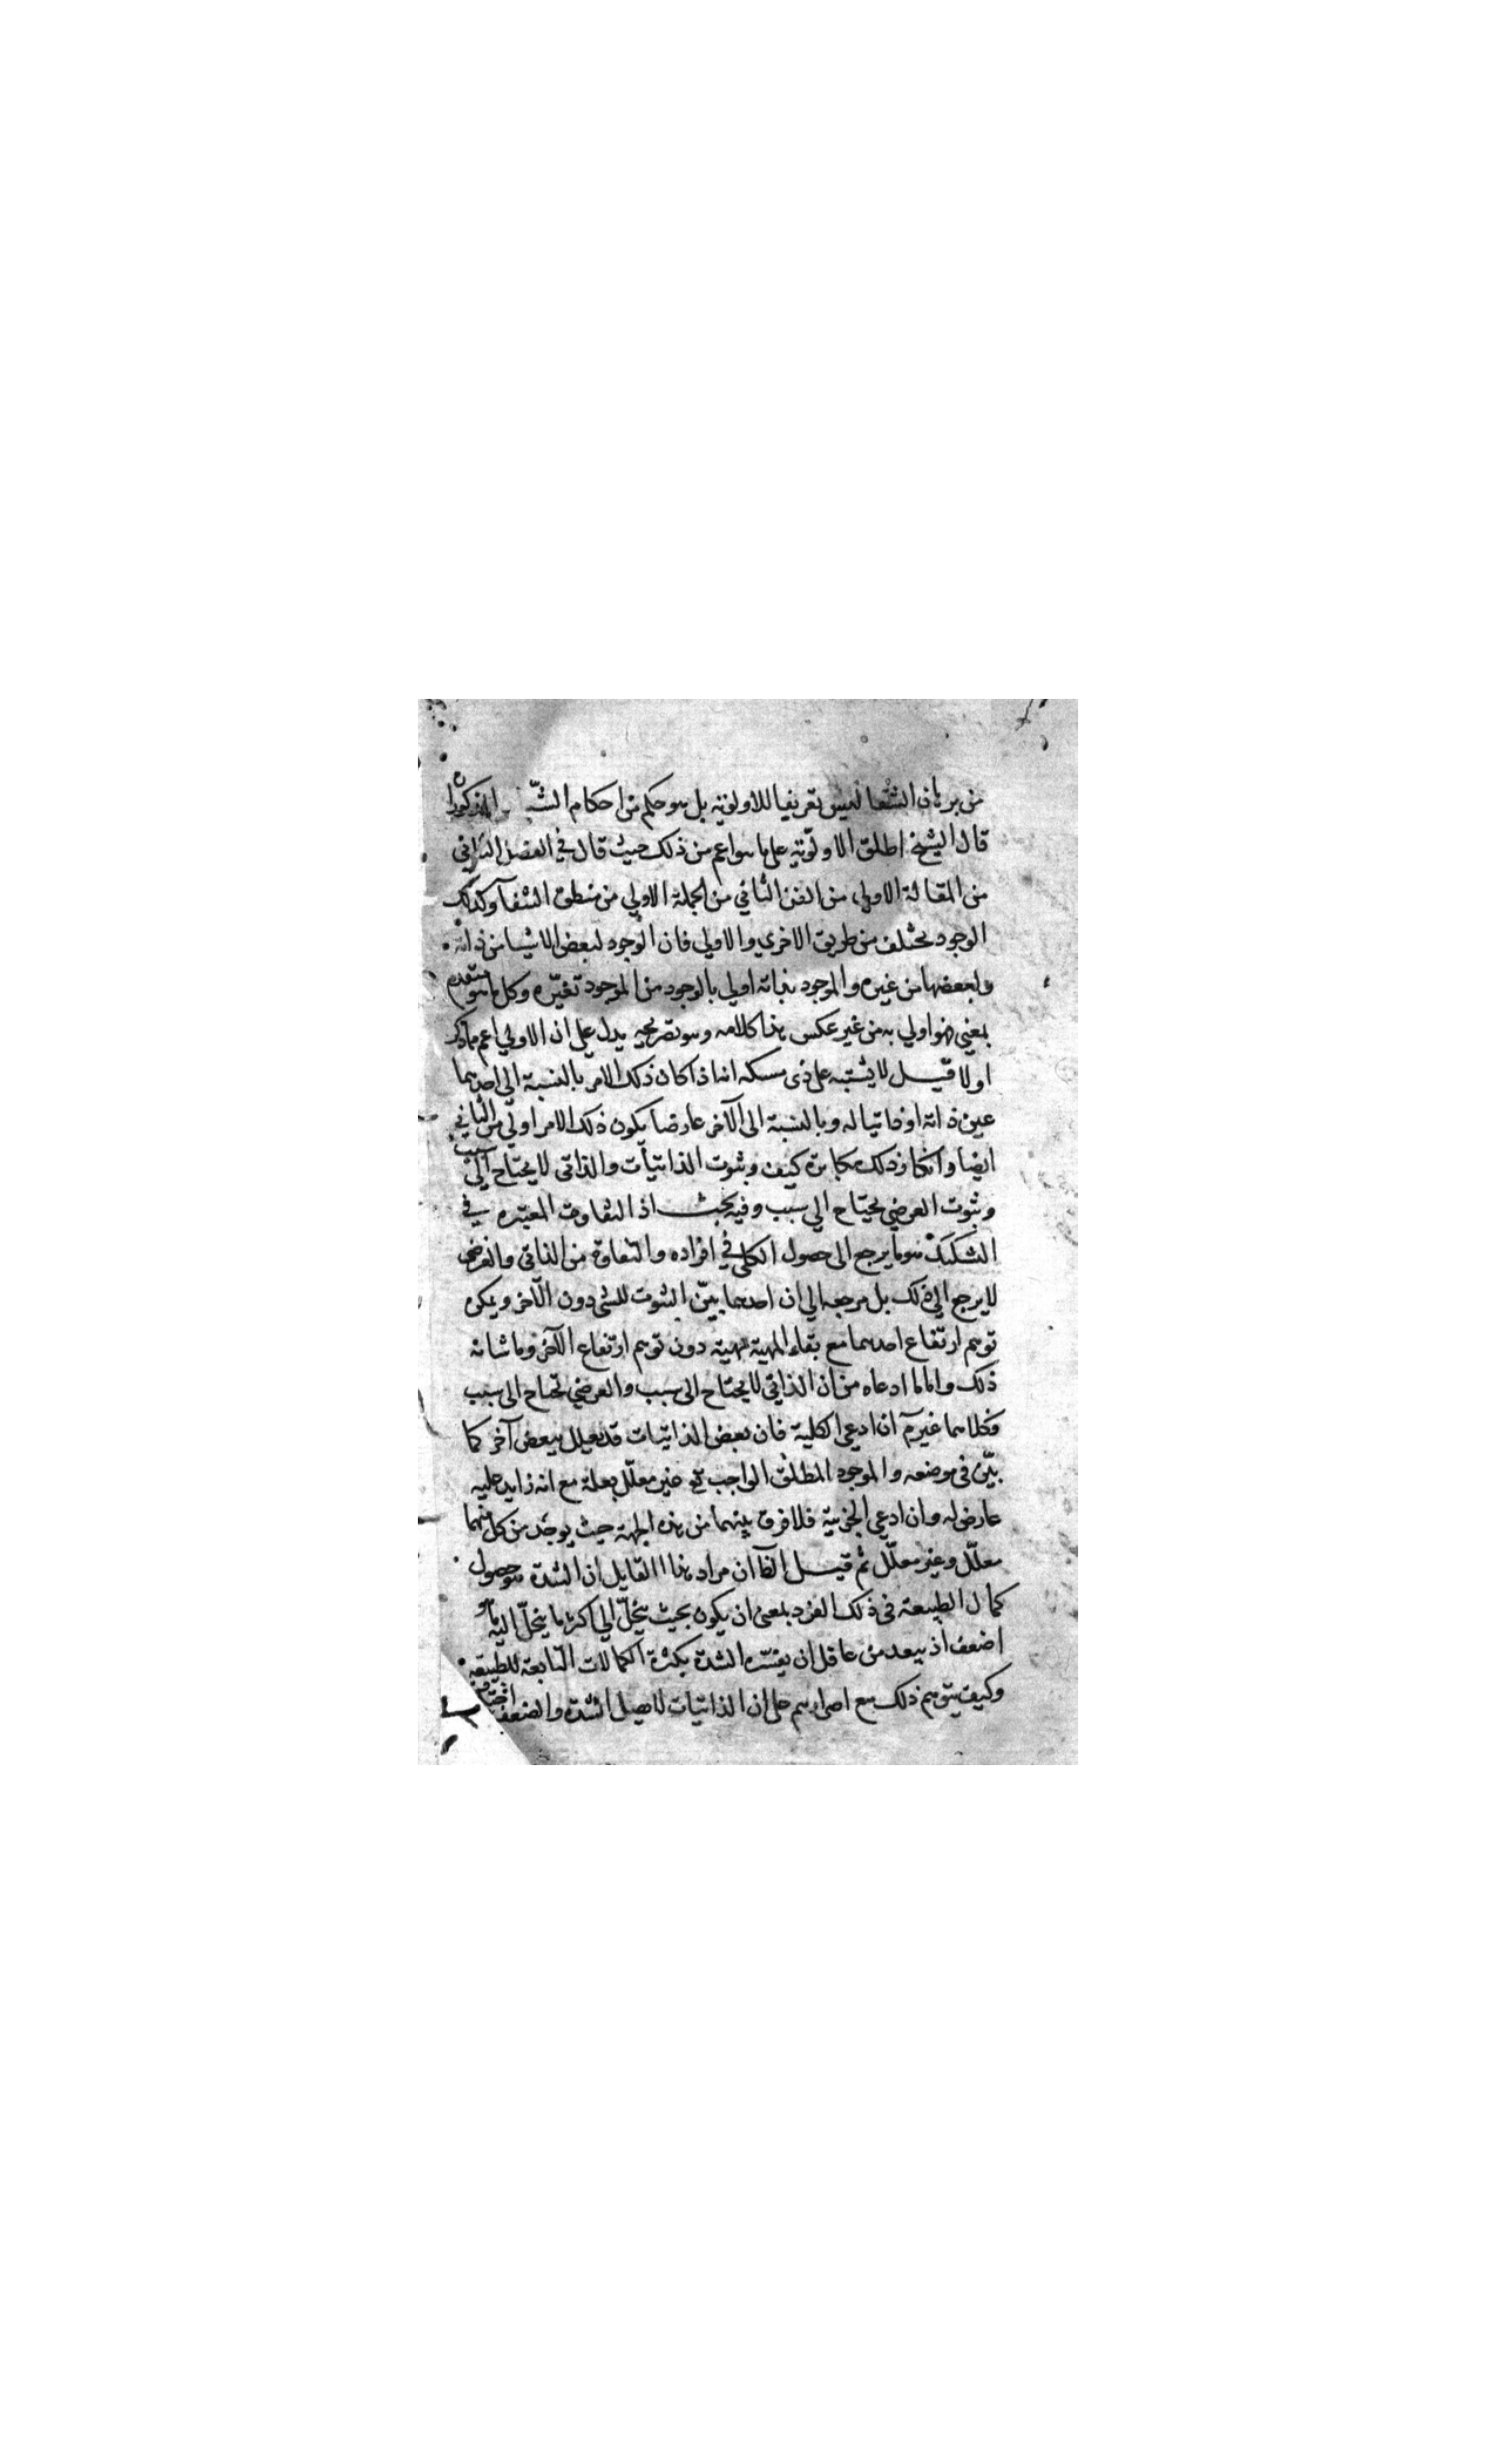 من برهان الشفا ليس تعريفا للاولوية بل هو حكم من احكام المذكور
قال الشيخ اطلق الاولوية على ما هو اعم من ذلك حيث قال في الفصل الثاني
من المقالة الاولي من الفن الثاني من الجملة الاولي من منطق الشفآ وكذلك
الوجود يختلف من طريق الاحري والاولي فان الوجود لبعض الاشيا من ذاته
ولبعضها من غيره والموجود بذاته اولي بالوجود من الموجود بغيره وكل ما هو متقدم
بمعني فهو اولي به من غير عكس هذا كلامه وهو بصريحه يدل علي ان الاولي اعم مما ذكر
اولا قيل لا يشتبه على ذى مسكه انه اذا كان ذلك الامر بالنسبة الى احدهما
عين ذاته او ذاتيا له وبالنسبة الى الآخر عارضا يكون ذلك الامر اولي من الثاني
ايضا وانكار ذلك مكابرة كيف وثبوت الذاتيات والذاتى لا يحتاج الي سبب
وثبوت العرضي يحتاج الي سبب وفيه بحث اذ التفاوت المعتبره في
التشكيك هو ما يرجع الى حصول الكلى في افراده والتفاوة من الذاتى والعرضى
لا يرجع الي ذلك بل مرجعه الي ان احدهما بيّن الثبوت للشى دون الآخر ويمكن
توهم ارتفاع احدهما مع بقاء المهية مهية دون توهم ارتفاع الآخر وما شانه
ذلك واما ما ادعاه من ان الذاتي لا يحتاج الى سبب والعرضي تحتاج الى سبب
فكلاهما غير مّ ان ادعي الكلية فان بعض الذاتيات قد يعلل ببعض آخر كما
بيّن فى موضعه والموجود المطلق الواجب تع غير معلّل بعلة مع انه زايد عليه
عارض له وان ادعي الجزئية فلا فرق بينهما من هذه الجهة حيث يوجد من كل منهما
معلّل وغير معلّل ثم قيل ان مراد هذا القايل ان الشدة هو حصول
كمال الطبيعة فى ذلك الفرد بمعنى ان يكون بحيث ينحلّ الي اكثر ما ينحلّ اليه
اضعف اذ يبعد من عاقل ان يفسّر الشدة بكثرة الكمالات التابعة للطبيعة
وكيف يتوهم ذلك مع اصرارهم على ان الذاتيات لا يقبل الشدة والضعف